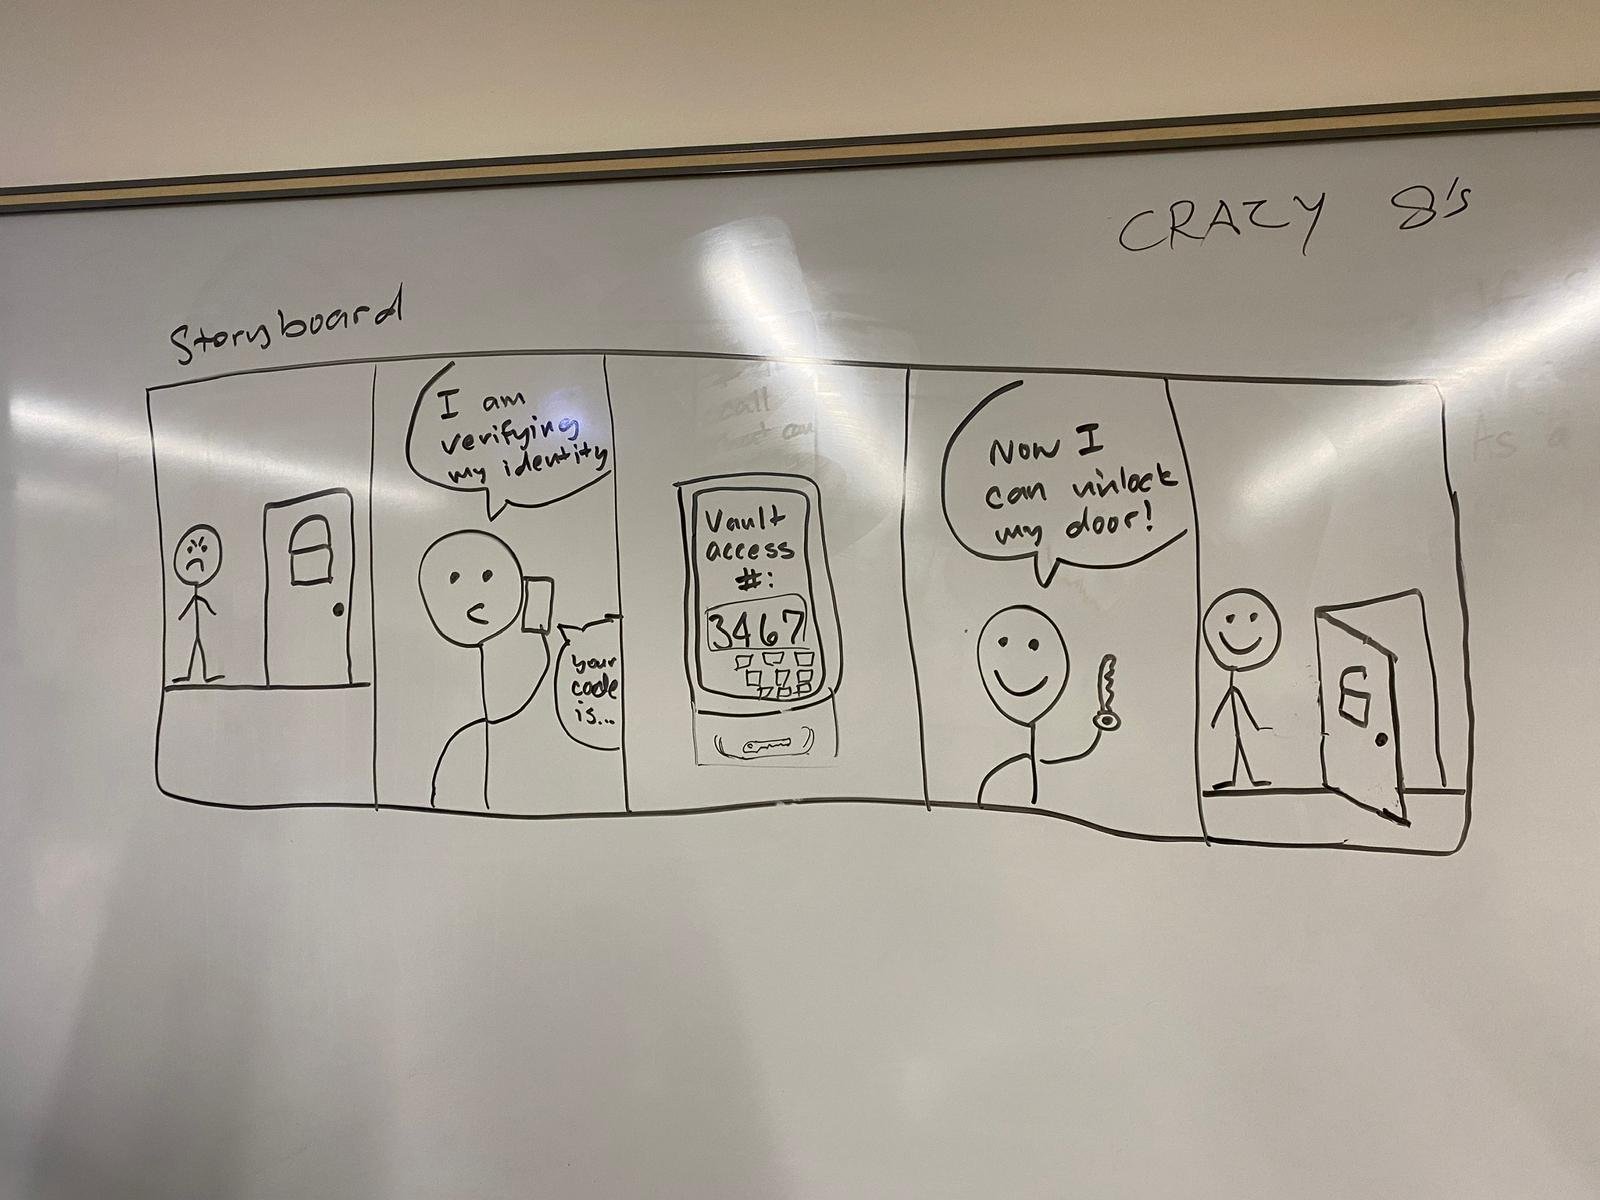 CRAZY 8's
Storyboard
I am
verifying
my identity
your
code
is...
Vault
access
#:
3467
Now I
can unlock
my door!
call
As a